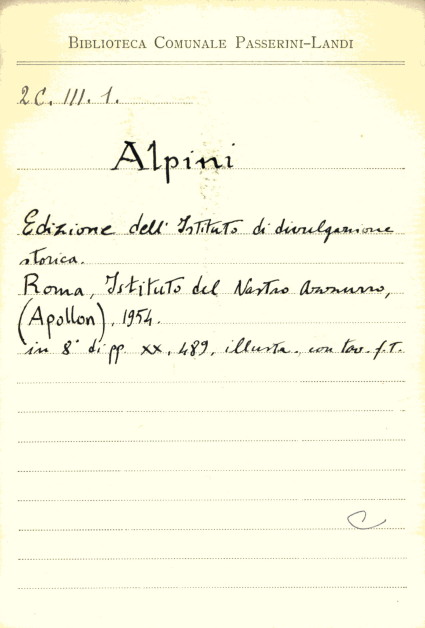 BIBLIOTECA COMUNALE PASSERINI-LANDI
2C. III. 1.
Alpini
Edizione dell' Istituto di divulgazione
storica.
Roma, Istituto del Nastro Azzurro,
(Apollon), 1954.
in 8° di pp. xx, 489, illustr. con tav. f.t.
C